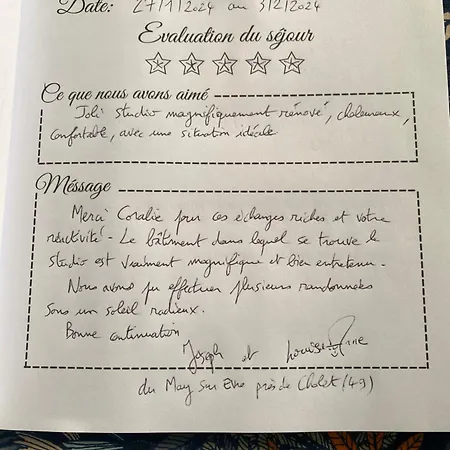 Date: 27/1/2024 au 3/2/2024
Evaluation du séjour
Ce que nous avons aimé
Joli studio magnifiquement rénové, chaleureux,
confortable, avec une situation idéale
Méssage
Merci Coralie pour ces échanges riches et votre
réactivité. Le bâtiment dans lequel se trouve le
studio est vraiment magnifique et bien entretenu.
Nous avons pu effectuer plusieurs randonnées
sous un soleil radieux.
Bonne continuation
Joseph et Louise Anne
du May sur Evre près de Cholet (49)